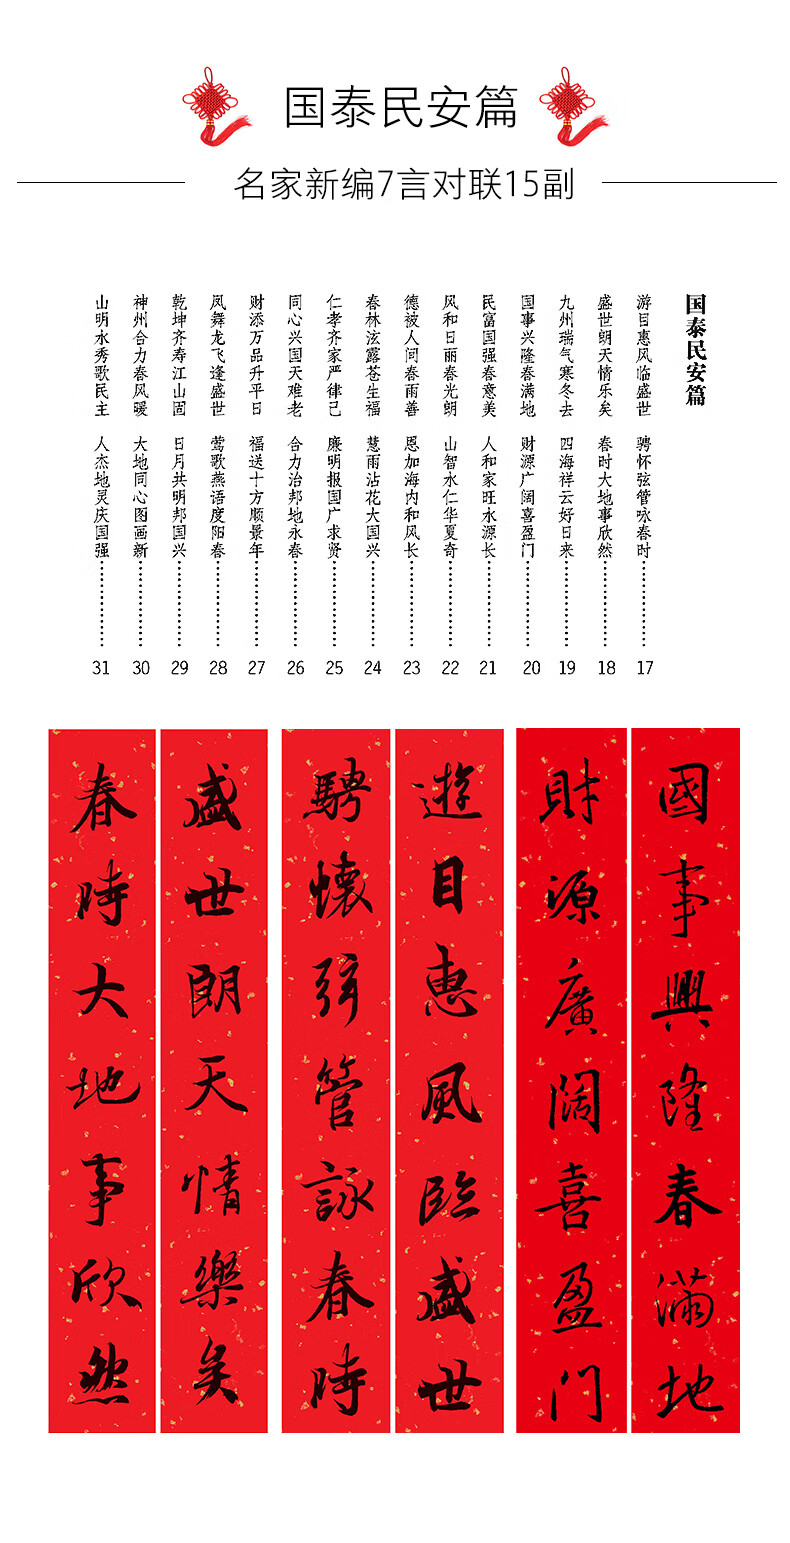 国泰民安篇
名家新编7言对联15副
国泰民安篇
游目惠风临盛世 骋怀弦管咏春时 17
盛世朗天情乐矣 春时大地事欣然 18
九州瑞气寒冬去 四海祥云好日来 19
国事兴隆春满地 财源广阔喜盈门 20
民富国强春意美 人和家旺水源长 21
风和日丽春光朗 山智水仁华夏奇 22
德被人间春雨善 恩加海内和风长 23
春林泫露苍生福 慧雨沾花大国兴 24
仁孝齐家严律己 廉明报国广求贤 25
同心兴国天难老 合力治邦地永春 26
财添万品升平日 福送十方顺景年 27
凤舞龙飞逢盛世 莺歌燕语度阳春 28
乾坤齐寿江山固 日月共明邦国兴 29
神州合力春风暖 大地同心图画新 30
山明水秀歌民主 人杰地灵庆国强 31
國事興隆春滿地
財源廣闊喜盈门
遊目惠風臨盛世
騁懷弦管詠春時
盛世朗天情樂矣
春時大地事欣然